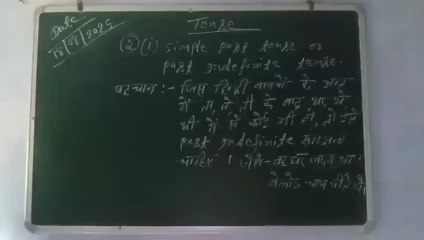 Date
18/08/2025
Tense
② (i) simple past tense or
past indefinite tense.
पहचान :- जिस हिन्दी वाक्यों के अन्त
में ता, ते, ती के बाद था, थे
थी में से कोई भी हो, तो उसे
past indefinite समझना
चाहिए । जैसे - वह घर जाता था।
वे लोग चाय पीते थे।